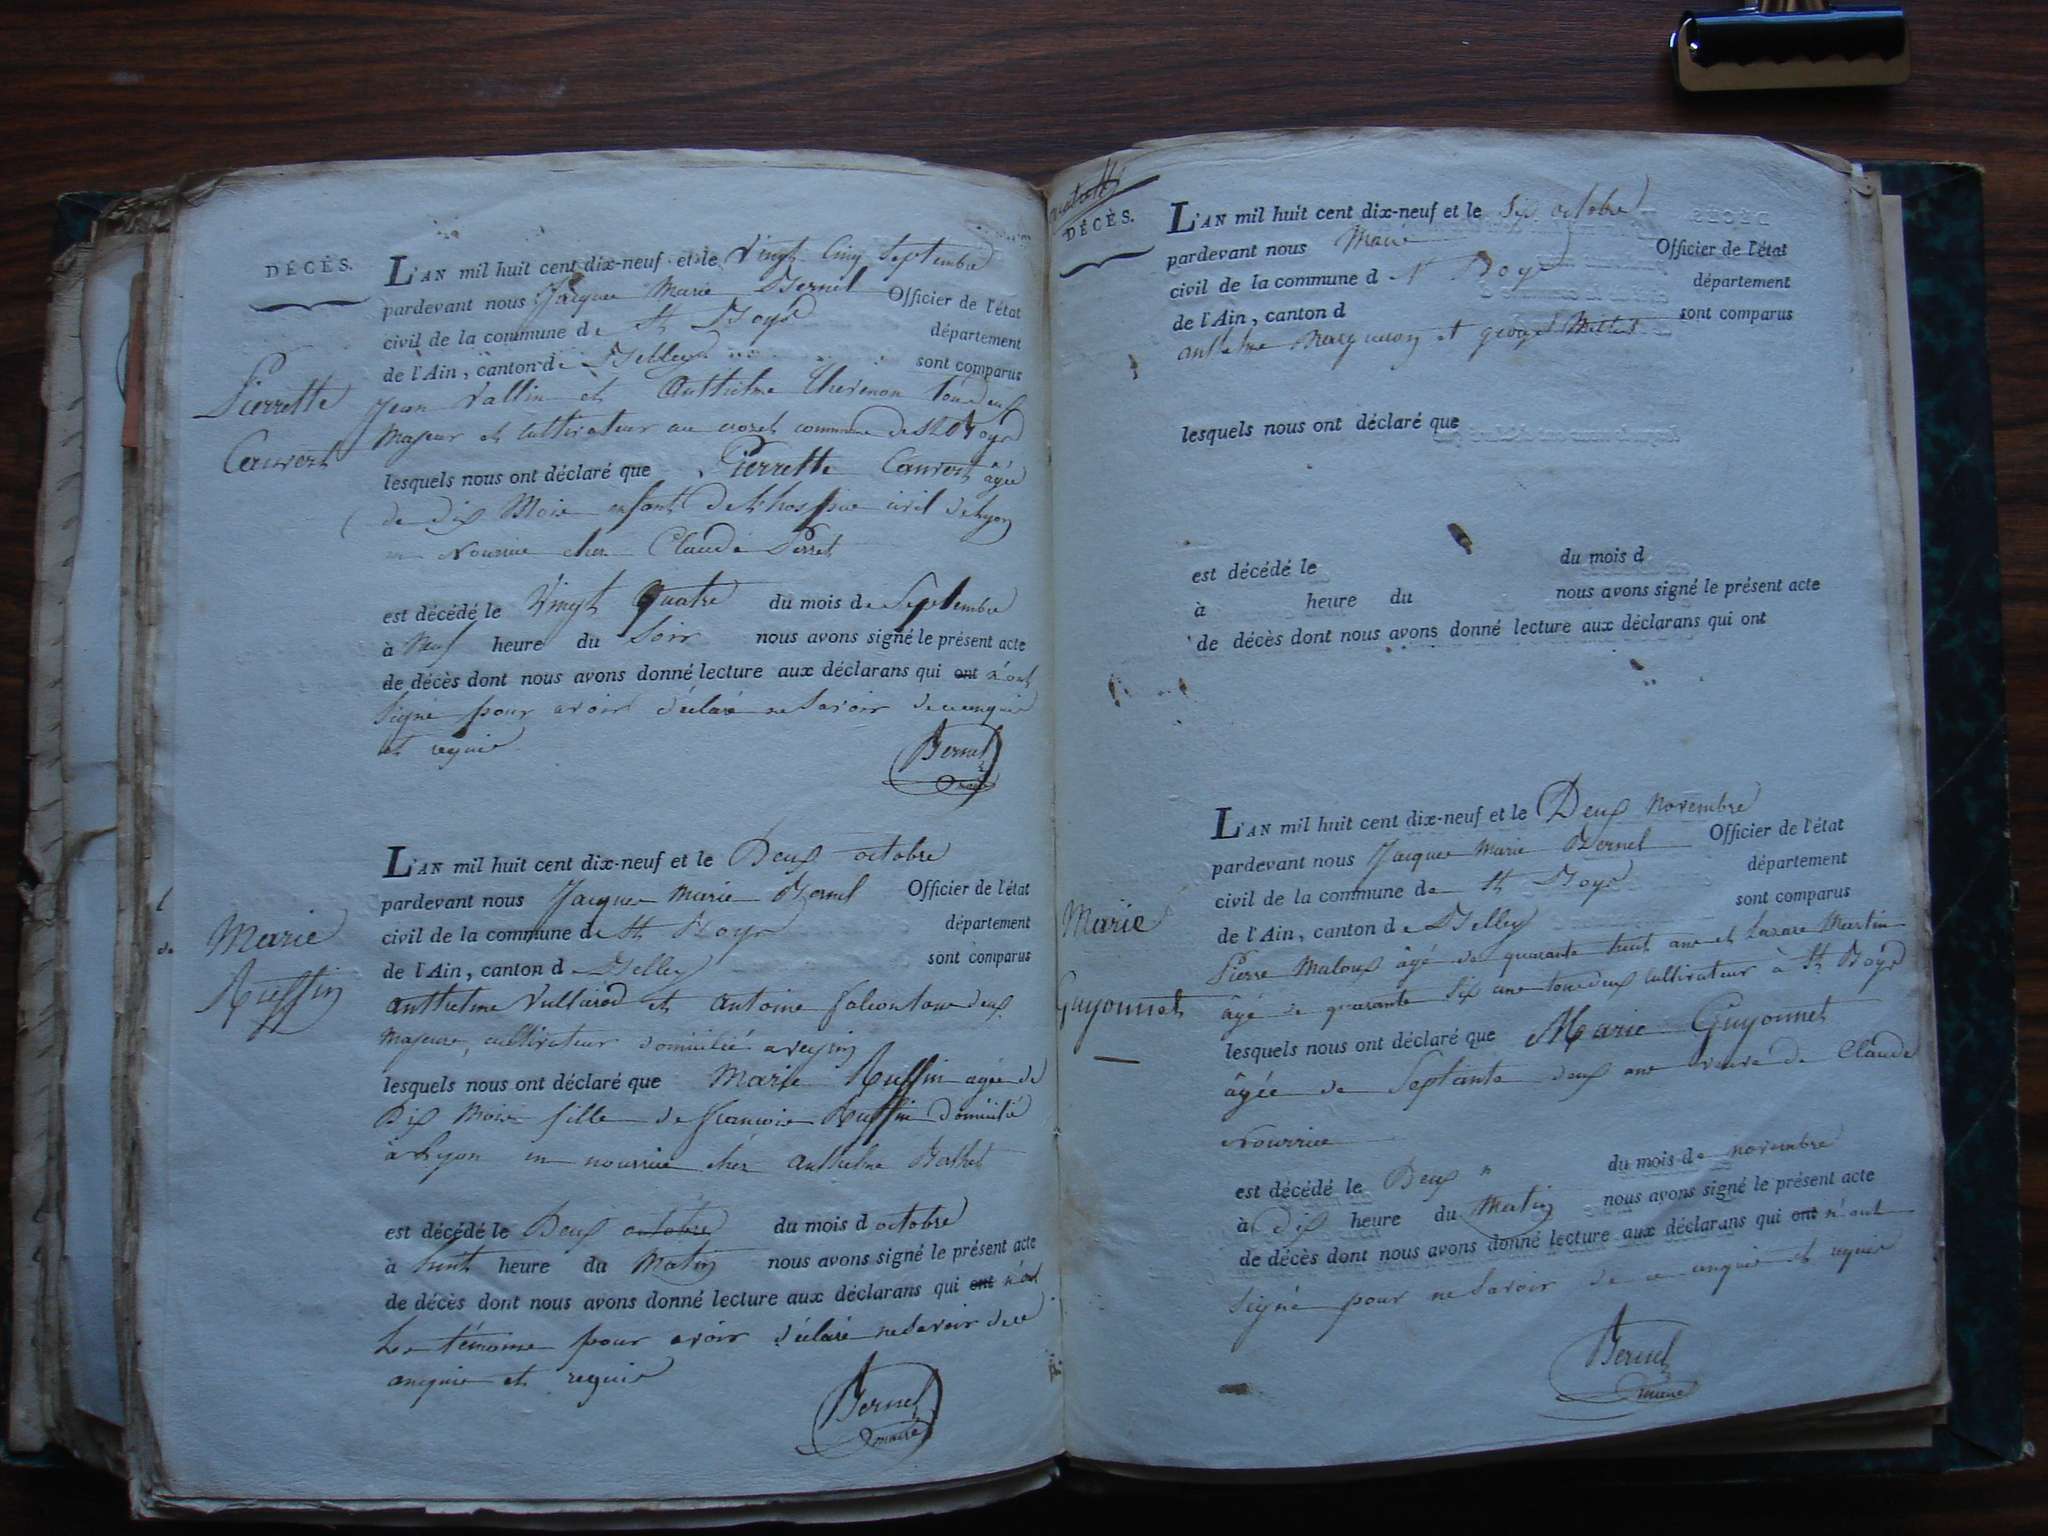 DÉCÈS.
L'AN mil huit cent dix-neuf et le Vingt Cinq Septembre
pardevant nous Jacque Marie Bernel Officier de l'état
civil de la commune de St Boys département
de l'Ain, canton de Belley sont comparus
Pierrette
Cauvert
Jean Vallin et Anthelme thevenon tous deux
Majeur et cultivateur au commune de St Boys
lesquels nous ont déclaré que Pierrette Cauvert âgée
de dix Mois enfant de l'hospice civil de Lyon
en Nourrice chez Claude Perret
est décédé le Vingt Quatre du mois de Septembre
à Neuf heure du Soir nous avons signé le présent acte
de décès dont nous avons donné lecture aux déclarans qui ont n'ont
Signé pour avoir déclaré ne Savoir de ce enquis
et requis
Bernel
L'AN mil huit cent dix-neuf et le Deux octobre
pardevant nous Jacque Marie Bernel Officier de l'état
civil de la commune de St Boys département
de l'Ain, canton de Belley sont comparus
Marie
Ruffin
Anthelme Vullierod et Antoine falcon tous deux
majeurs, cultivateur domicilié a veyrin
lesquels nous ont déclaré que Marie Ruffin agée de
Dix Mois fille de francois Ruffin domicilié
à Lyon en nourrice chéz Anthelme Bathet
est décédé le Deux octobre du mois d octobre
à huit heure du Matin nous avons signé le présent acte
de décès dont nous avons donné lecture aux déclarans qui ont n'ont
Les témoins pour avoir déclaré ne Savoir de ce
enquis et requis
Bernel
maire
DÉCÈS.
L'AN mil huit cent dix-neuf et le Six octobre
pardevant nous Maire Officier de l'état
civil de la commune d St Boys département
de l'Ain, canton d sont comparus
anthelme et george Millet
lesquels nous ont déclaré que
est décédé le du mois d
à heure du nous avons signé le présent acte
de décès dont nous avons donné lecture aux déclarans qui ont
L'AN mil huit cent dix-neuf et le Deux Novembre
pardevant nous Jacque Marie Bernel Officier de l'état
civil de la commune de St Boys département
de l'Ain, canton de Belley sont comparus
Marie
Guyonnet
Pierre Maloux âgé de quarante huit ans et Lazare Martin
âgé de quarante Six ans tous deux cultivateur à St Boys
lesquels nous ont déclaré que Marie Guyonnet
âgée de Septante deux ans veuve de Claude
Nourrice
est décédé le Deux du mois de novembre
à dix heure du Matin nous avons signé le présent acte
de décès dont nous avons donné lecture aux déclarans qui ont n'ont
Signé pour ne Savoir de ce enquis et requis
Bernel
maire